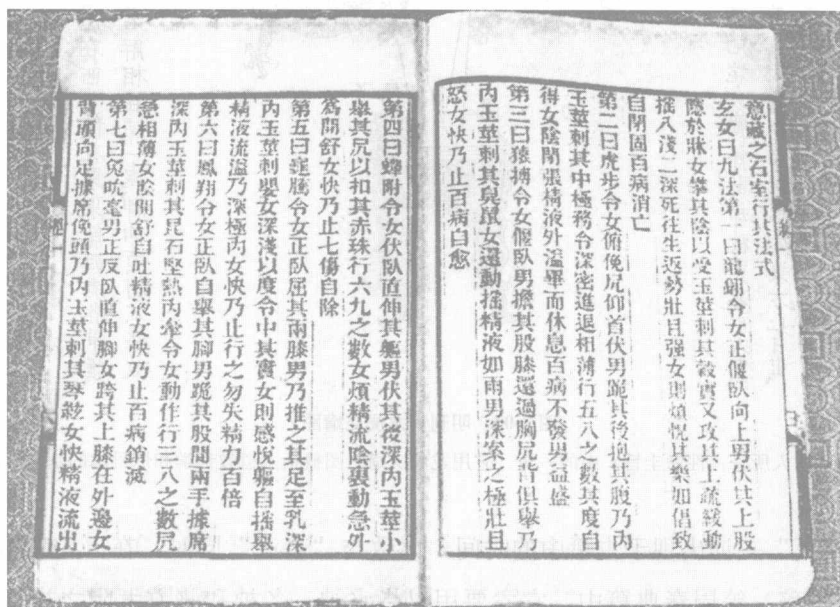 意藏之石室行其法式
玄女曰九法第一曰龍翻令女正偃臥向上男伏其上股
隱於牀女攀其陰以受玉莖刺其穀實又攻其上疏緩動
搖八淺二深死往生返勢壯且强女則煩悅其樂如倡致
自閉固百病消亡
第二曰虎步令女俯俛尻仰首伏男跪其後抱其腹乃內
玉莖刺其中極務令深密進退相薄行五八之數其度自
得女陰閉張精液外溢畢而休息百病不發男益盛
第三曰猿搏令女偃臥男擔其股膝還過胸尻背俱舉乃
內玉莖刺其臭鼠女還動搖精液如雨男深案之極壯且
怒女快乃止百病自愈
第四曰蟬附令女伏臥直伸其軀男伏其後深內玉莖小
舉其尻以扣其赤珠行六九之數女煩精流陰裏動急外
爲開舒女快乃止七傷自除
第五曰龜騰令女正臥屈其兩膝男乃推之其足至乳深
內玉莖刺嬰女深淺以度令中其實女則感悅軀自搖舉
精液流溢乃深極內女快乃止行之勿失精力百倍
第六曰鳳翔令女正臥自舉其脚男跪其股間兩手據席
深內玉莖刺其昆石堅熱內牽令女動作行三八之數尻
急相薄女陰開舒自吐精液女快乃止百病銷滅
第七曰兔吮毫男正反臥直伸脚女跨其上膝在外邊女
背頭向足據席俛頭乃內玉莖刺其琴絃女快精液流出